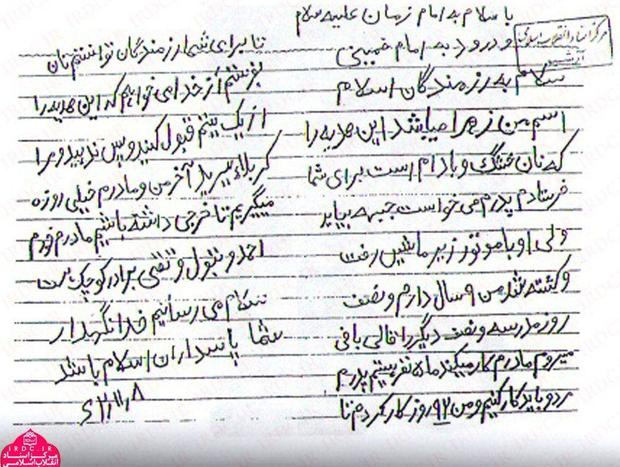 با سلام به امام زمان علیه سلام
و درود به امام خمینی
سلام به رزمندگان اسلام
اسم من زهرا میباشد این هدیه را
که نان خشک و بادام است برای شما
فرستادم پدرم می‌خواست جبهه بیاید
ولی او با موتور زیر ماشین رفت
و کشته شد من ۹ سال دارم و نصف
روز مدرسه و نصف دیگر را قالی بافی
میروم مادرم کار میکند ما ۵ نفر هستیم پدرم
مرد و باید کار کنیم و من ۹۲ روز کار کردم تا
تا برای شما رزمندگان توانستم نان
بفرستم از خدا می‌خواهم که این هدیه را
از یک یتیم قبول کنید و پس ندهید و مرا
کربلا ببرید آخر من و مادرم خیلی روزه
میگیریم تا خرجی داشته باشیم مادرم خودم
احمد و بتول و تقی برادر کوچک‌
سلام می رسانیم خدا نگهدار
شما پاسداران اسلام باشد
مرکز اسناد انقلاب اسلامی
آرشیو
IRDC.IR
مرکز اسناد
انقلاب اسلامی